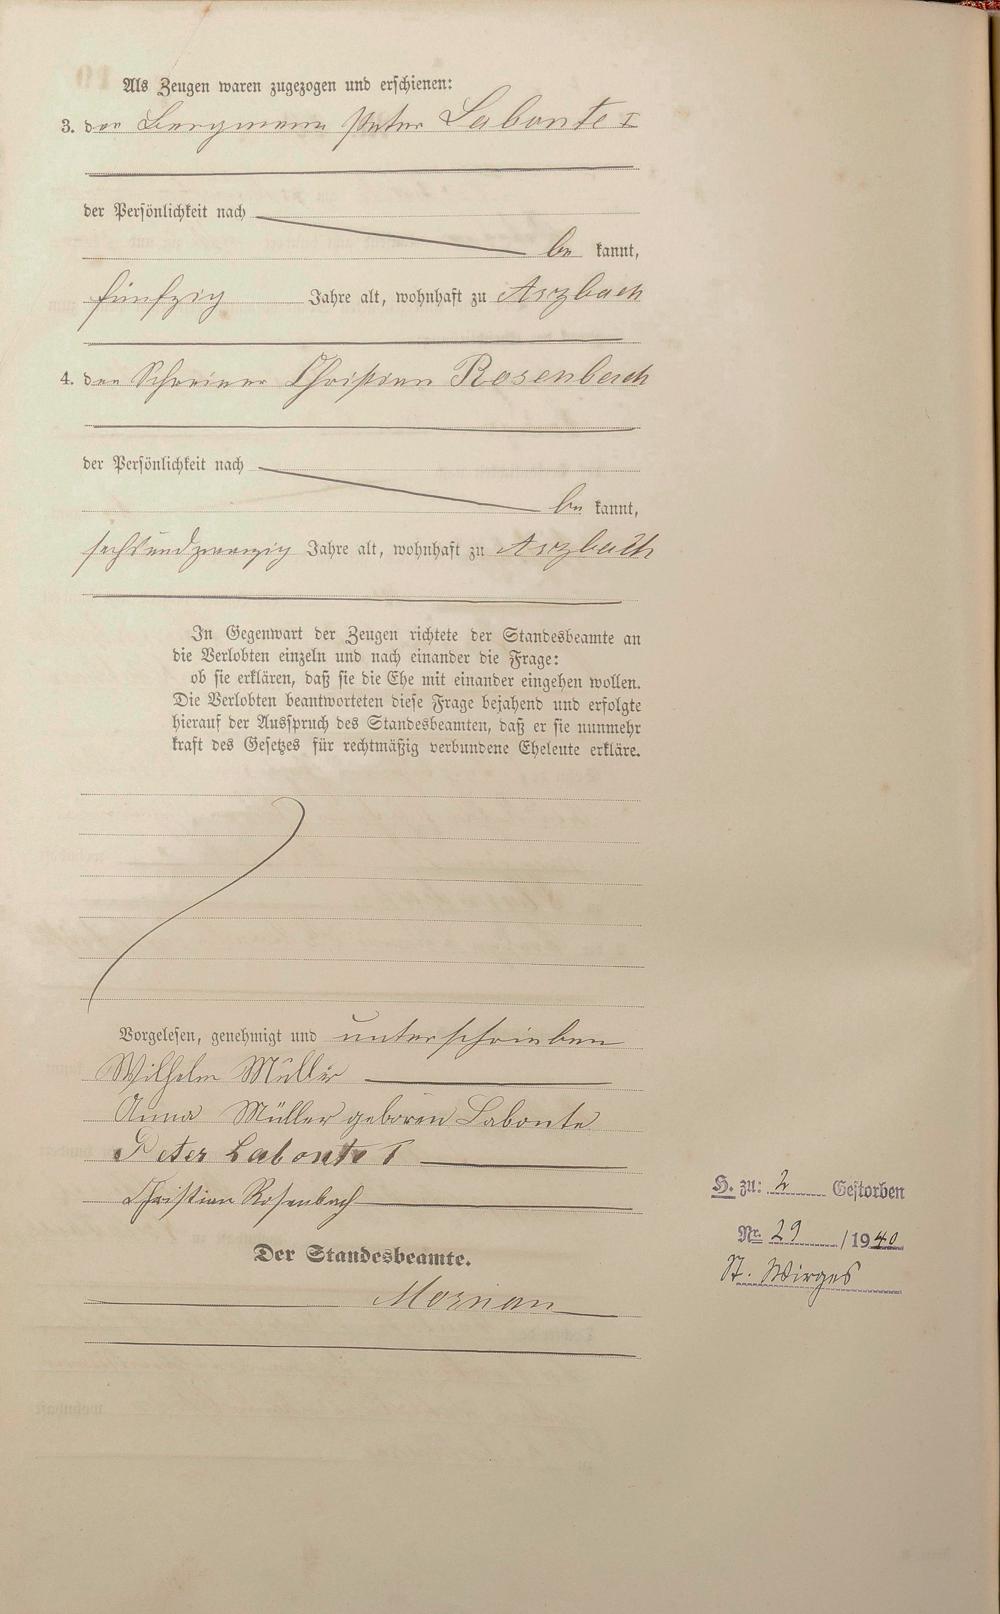 Als Zeugen waren zugezogen und erschienen:
3. der Bergmann Peter Labonte I
der Persönlichkeit nach
be kannt,
fünfzig Jahre alt, wohnhaft zu Arzbach
4. der Schreiner Christian Rosenbach
der Persönlichkeit nach
be kannt,
sechsundzwanzig Jahre alt, wohnhaft zu Arzbach
In Gegenwart der Zeugen richtete der Standesbeamte an
die Verlobten einzeln und nach einander die Frage:
ob sie erklären, daß sie die Ehe mit einander eingehen wollen.
Die Verlobten beantworteten diese Frage bejahend und erfolgte
hierauf der Ausspruch des Standesbeamten, daß er sie nunmehr
kraft des Gesetzes für rechtmäßig verbundene Eheleute erkläre.
Vorgelesen, genehmigt und unterschrieben
Wilhelm Müller
Anna Müller geboren Labonte
Peter Labonte I
Christian Rosenbach
Der Standesbeamte.
H. zu: 2 Gestorben
Nr. 29 /1940
St. Wirges